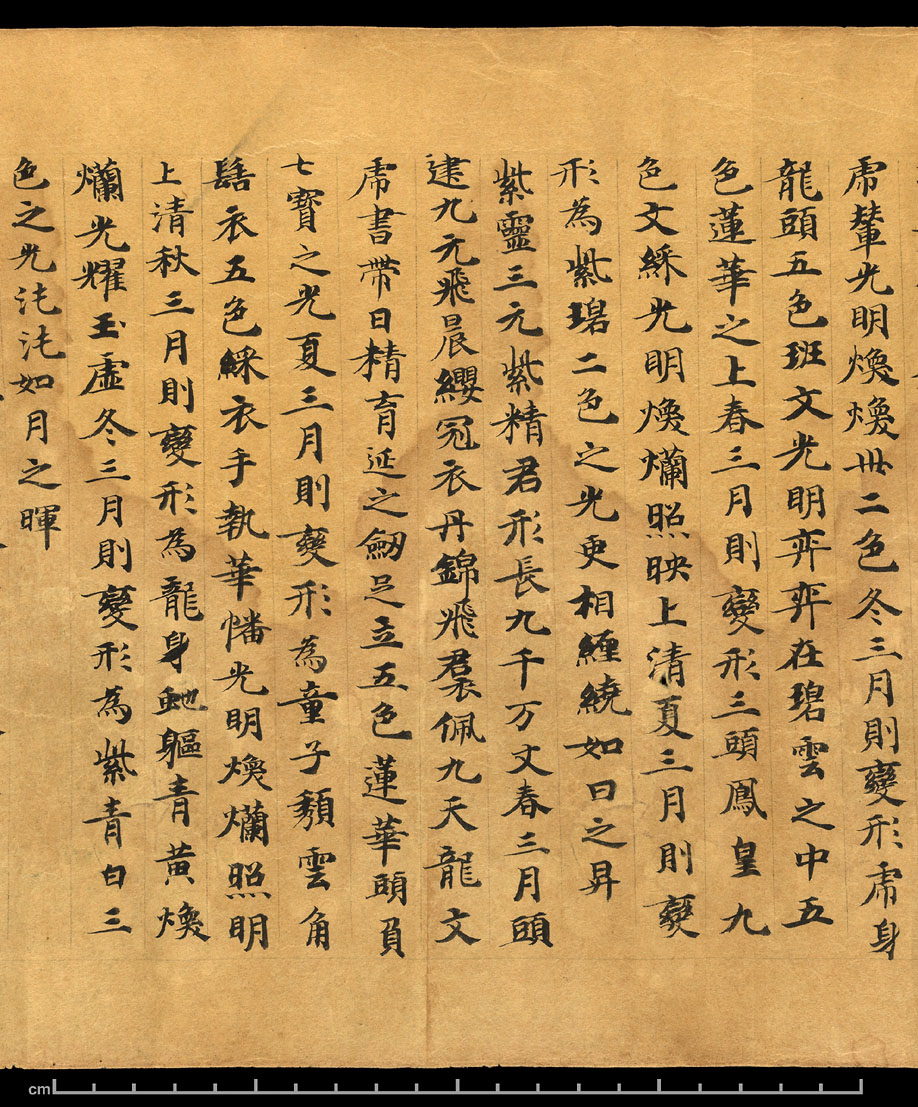 虎輦光明煥煥卅二色冬三月則變形虎身
龍頭五色班文光明弈弈在碧雲之中五
色蓮華之上春三月則變形三頭鳳皇九
色文綵光明煥爛照映上清夏三月則變
形為紫碧二色之光更相纏繞如日之昇
紫靈三元紫精君形長九千万丈春三月頭
建九元飛晨纓冠衣丹錦飛裙佩九天龍文
虎書帶日精育延之劒足立五色蓮華頭負
七寶之光夏三月則變形為童子頮雲角
髻衣五色綵衣手執華幡光明煥爛照明
上清秋三月則變形為龍身虵軀青黃煥
爛光耀玉虛冬三月則變形為紫青白三
色之光沌沌如月之暉
cm